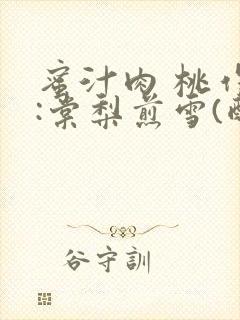 蜜汁肉桃 作
:棠梨煎雪(
谷守訓